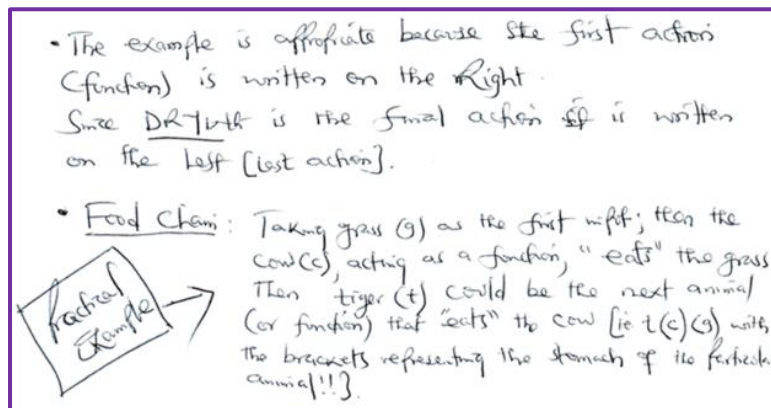 • The example is appropriate because the first action
(function) is written on the Right.
Since DRYuth is the final action it is written
on the Left [last action].
• Food Chain: Taking grass (g) as the first input; then the
cow(c), acting as a function, "eats" the grass
Then tiger (t) could be the next animal
(or function) that "eats" the cow [ie t(c)(g) with
the brackets representing the stomach of the particular
animal!!].
Practical
Example